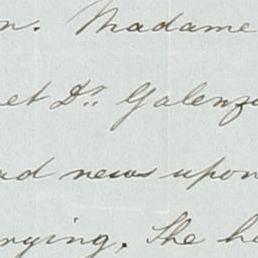 n. Madame
et Dr. Galenzo
d news upon
rying. She ha